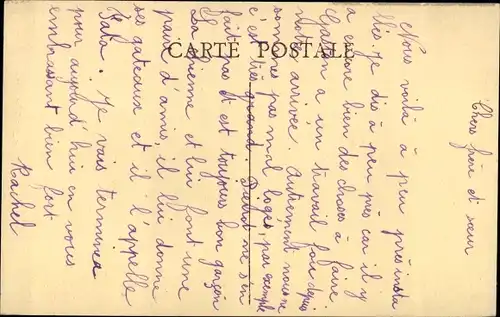 CARTE POSTALE
Chers frère et sœur
Nous voilà à peu près insta
llés je dis à peu près car il y
a encore bien des choses à faire
Gaston a un travail fou depuis
notre arrivée. Autrement nous ne
sommes pas mal logés, par exemple
c'est très grand. ne s'en
fait pas et est toujours bon garçon
La chienne et lui font une
paire d'amis, il lui donne
ses gateaux et il l'appelle
Tata. Je vais terminer
pour aujourd'hui en vous
embrassant bien fort
Rachel